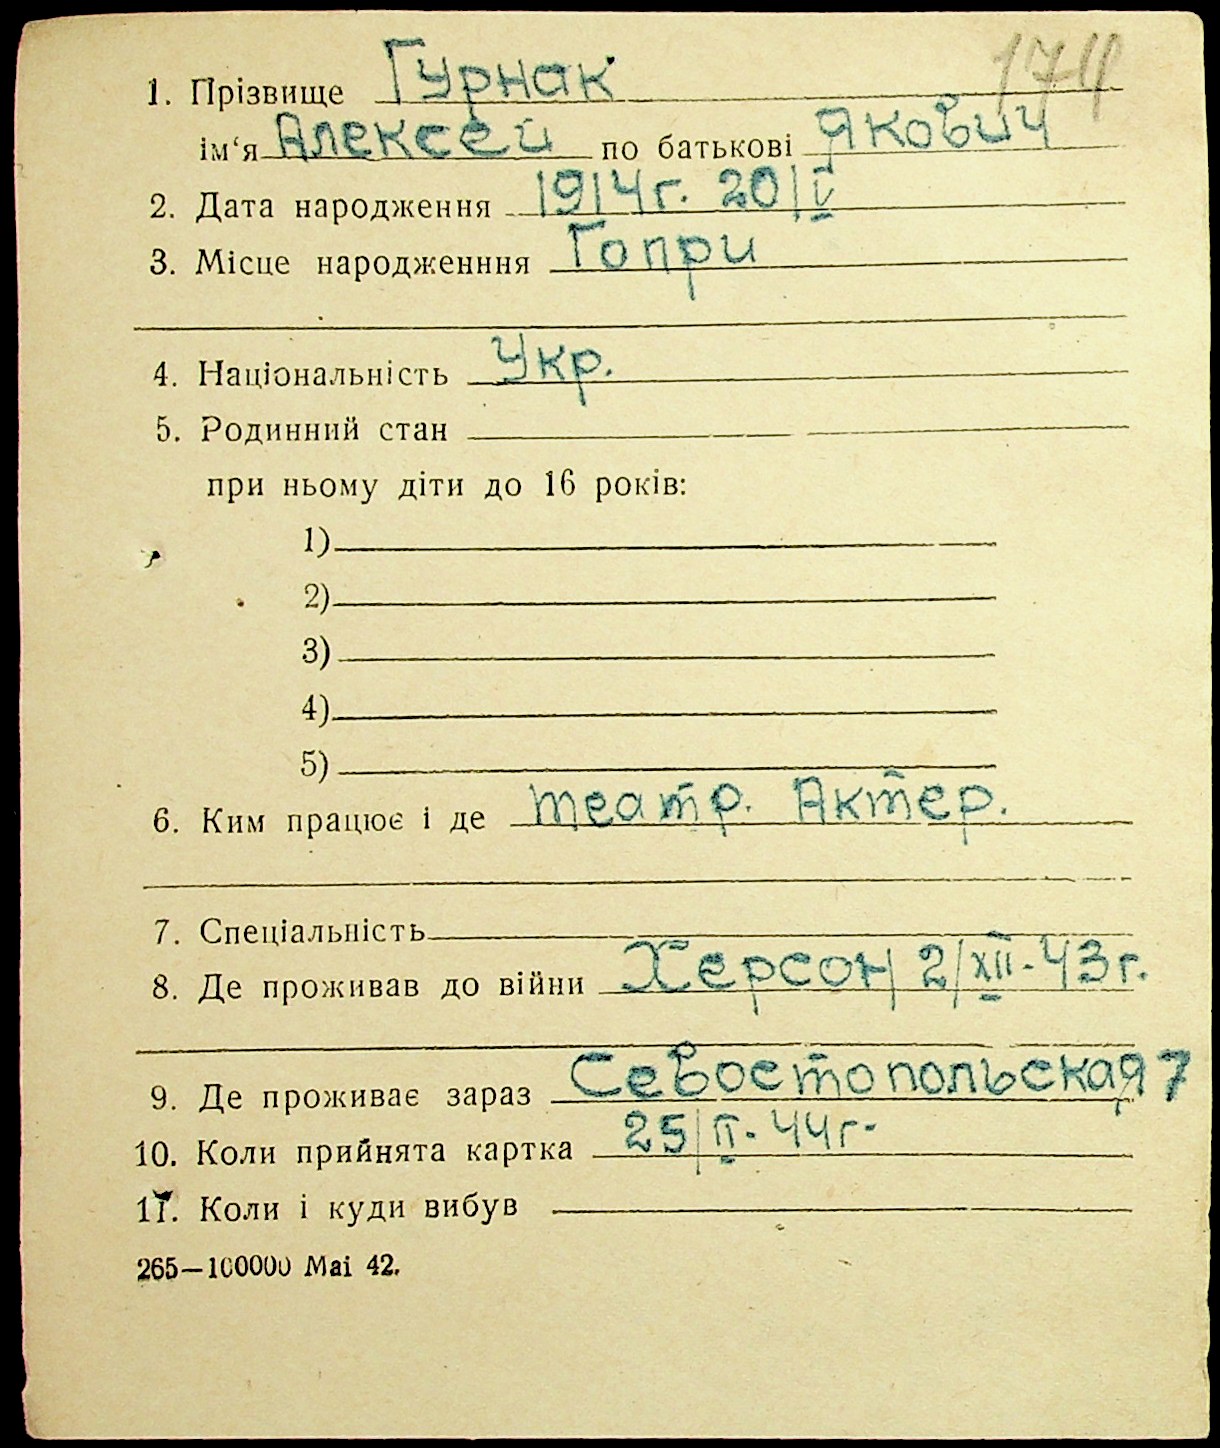 1. Прізвище Гурнак 174
ім‘я Алексей по батькові Якович
2. Дата народження 1914г. 20/V
3. Місце народженння Гопри
4. Національність Укр.
5. Родинний стан
при ньому діти до 16 років:
1)
2)
3)
4)
5)
6. Ким працює і де театр. Актер.
7. Спеціальність
8. Де проживав до війни Херсон/2/XII-43г.
9. Де проживає зараз Севостопольская 7
10. Коли прийнята картка 25/II-44г-
11. Коли і куди вибув
265—100000 Mai 42.